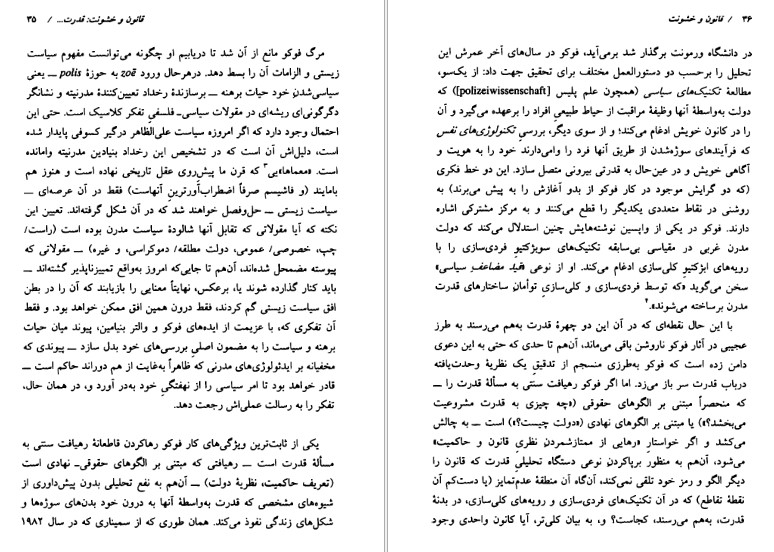 قانون و خشونت: قدرت... / ۳۵
مرگ فوکو مانع از آن شد تا دریابیم او چگونه می‌توانست مفهوم سیاست
زیستی و الزامات آن را بسط دهد. درهرحال ورود zoē به حوزۀ polis ــ یعنی
سیاسی‌شدن خود حیات برهنه ــ برسازندۀ رخداد تعیین‌کنندۀ مدرنیته و نشانگر
دگرگونی‌ای ریشه‌ای در مقولات سیاسی‌ـ فلسفی تفکر کلاسیک است. حتی این
احتمال وجود دارد که اگر امروزه سیاست علی‌الظاهر درگیر کسوفی پایدار شده
است، دلیل‌اش آن است که در تشخیص این رخداد بنیادین مدرنیته وامانده
است. «معماها»یی۳ که قرن ما پیش‌روی عقل تاریخی نهاده است و هنوز هم
بامایند (و فاشیسم صرفاً اضطراب‌آورترینِ آنهاست) فقط در آن عرصه‌ای ــ
سیاست زیستی ــ حل‌وفصل خواهند شد که در آن شکل گرفته‌اند. تعیین این
نکته که آیا مقولاتی که تقابل آنها شالودۀ سیاست مدرن بوده است (راست/
چپ، خصوصی/ عمومی، دولت مطلقه/ دموکراسی، و غیره) ــ مقولاتی که
پیوسته مضمحل شده‌اند، آن‌هم تا جایی‌که امروز به‌واقع تمییزناپذیر گشته‌اند ــ
باید کنار گذارده شوند یا، برعکس، نهایتاً معنایی را بازیابند که آن را در بطن
افق سیاست زیستی گم کردند، فقط درون همین افق ممکن خواهد بود. و فقط
آن تفکری که، با عزیمت از ایده‌های فوکو و والتر بنیامین، پیوند میان حیات
برهنه و سیاست را به مضمون اصلیِ بررسی‌های خود بدل سازد ــ پیوندی که
مخفیانه بر ایدئولوژی‌های مدرنی که ظاهراً به‌غایت از هم دوراند حاکم است ــ
قادر خواهد بود تا امر سیاسی را از نهفتگیِ خود به‌در آورد و، در همان حال،
تفکر را به رسالت عملی‌اش رجعت دهد.
یکی از ثابت‌ترین ویژگی‌های کار فوکو رهاکردن قاطعانۀ رهیافت سنتی به
مسألۀ قدرت است ــ رهیافتی که مبتنی بر الگوهای حقوقی‌ـ نهادی است
(تعریف حاکمیت، نظریۀ دولت) ــ آن‌هم به نفع تحلیلی بدون پیش‌داوری از
شیوه‌های مشخصی که قدرت به‌واسطۀ آنها به درون خود بدن‌های سوژه‌ها و
شکل‌های زندگی نفوذ می‌کند. همان طوری که از سمیناری که در سال ۱۹۸۲
۳۶ / قانون و خشونت
در دانشگاه ورمونت برگذار شد برمی‌آید، فوکو در سال‌های آخر عمرش این
تحلیل را برحسب دو دستورالعمل مختلف برای تحقیق جهت داد: از یک‌سو،
مطالعۀ تکنیک‌های سیاسی (همچون علم پلیس [polizeiwissenschaft]) که
دولت به‌واسطۀ آنها وظیفۀ مراقبت از حیاط طبیعیِ افراد را برعهده می‌گیرد و آن
را در کانون خویش ادغام می‌کند؛ و از سوی دیگر، بررسیِ تکنولوژی‌های نفس
که فرآیندهای سوژه‌شدن از طریق آنها فرد را وامی‌دارند خود را به هویت و
آگاهی خویش و در عین‌حال به قدرتی بیرونی متصل سازد. این دو خط فکری
(که دو گرایش موجود در کار فوکو از بدو آغازش را به پیش می‌برند) به
روشنی در نقاط متعددی یکدیگر را قطع می‌کنند و به مرکز مشترکی اشاره
دارند. فوکو در یکی از واپسین نوشته‌هایش چنین استدلال می‌کند که دولت
مدرن غربی در مقیاسی بی‌سابقه تکنیک‌های سوبژکتیوِ فردی‌سازی را با
رویه‌های ابژکتیوِ کلی‌سازی ادغام می‌کند. او از نوعی «قید مضاعفِ سیاسی»
سخن می‌گوید «که توسط فردی‌سازی و کلی‌سازیِ توأمانِ ساختارهای قدرت
مدرن برساخته می‌شوند».۴
با این حال نقطه‌ای که در آن این دو چهرۀ قدرت به‌هم می‌رسند به طرز
عجیبی در آثار فوکو ناروشن باقی می‌ماند، آن‌هم تا حدی که حتی به این دعوی
دامن زده است که فوکو به‌طرزی منسجم از تدقیقِ یک نظریۀ وحدت‌یافته
درباب قدرت سر باز می‌زد. اما اگر فوکو رهیافت سنتی به مسألۀ قدرت را ــ
که منحصراً مبتنی بر الگوهای حقوقی («چه چیزی به قدرت مشروعیت
می‌بخشد؟») یا مبتنی بر الگوهای نهادی («دولت چیست؟») است ــ به چالش
می‌کشد و اگر خواستارِ «رهایی از ممتازشمردنِ نظریِ قانون و حاکمیت»
می‌شود، آن‌هم به منظور برپاکردن نوعی دستگاه تحلیلیِ قدرت که قانون را
دیگر الگو و رمز خود تلقی نمی‌کند، آن‌گاه آن منطقۀ عدم‌تمایز (یا دست‌کم آن
نقطۀ تقاطع) که در آن تکنیک‌های فردی‌سازی و رویه‌های کلی‌سازی، در بدنۀ
قدرت، به‌هم می‌رسند، کجاست؟ و، به بیان کلی‌تر، آیا کانون واحدی وجود